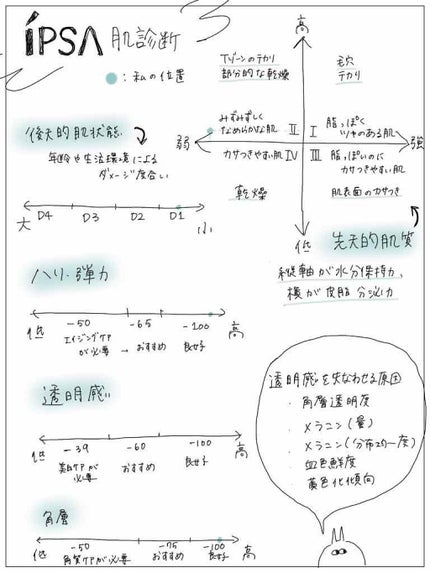 ÍPSA 肌診断
:私の位置
後天的肌状態
年齢や生活環境による
ダメージ度合い
D4 D3 D2 D1
大 小
高
Tゾーンのテカリ
部分的な乾燥
毛穴
テカリ
みずみずしく
なめらかな肌 Ⅱ
Ⅰ 脂っぽく
ツヤのある肌
弱 強
カサつきやすい肌 Ⅳ
Ⅲ 脂っぽいのに
カサつきやすい肌
乾燥
肌表面のカサつき
低
先天的肌質
縦軸が水分保持力、
横が皮脂分泌力
ハリ・弾力
-50 -65 -100
低 高
エイジングケア
が必要 → おすすめ 良好
透明感
-39 -60 -100
低 高
美白ケアが
必要 おすすめ 良好
角層
-50 -75 -100
低 高
角質ケアが必要 おすすめ 良好
透明感を失なわせる原因
・角層透明度
・メラニン(量)
・メラニン(分布均一度)
・血色鮮度
・黄色化傾向